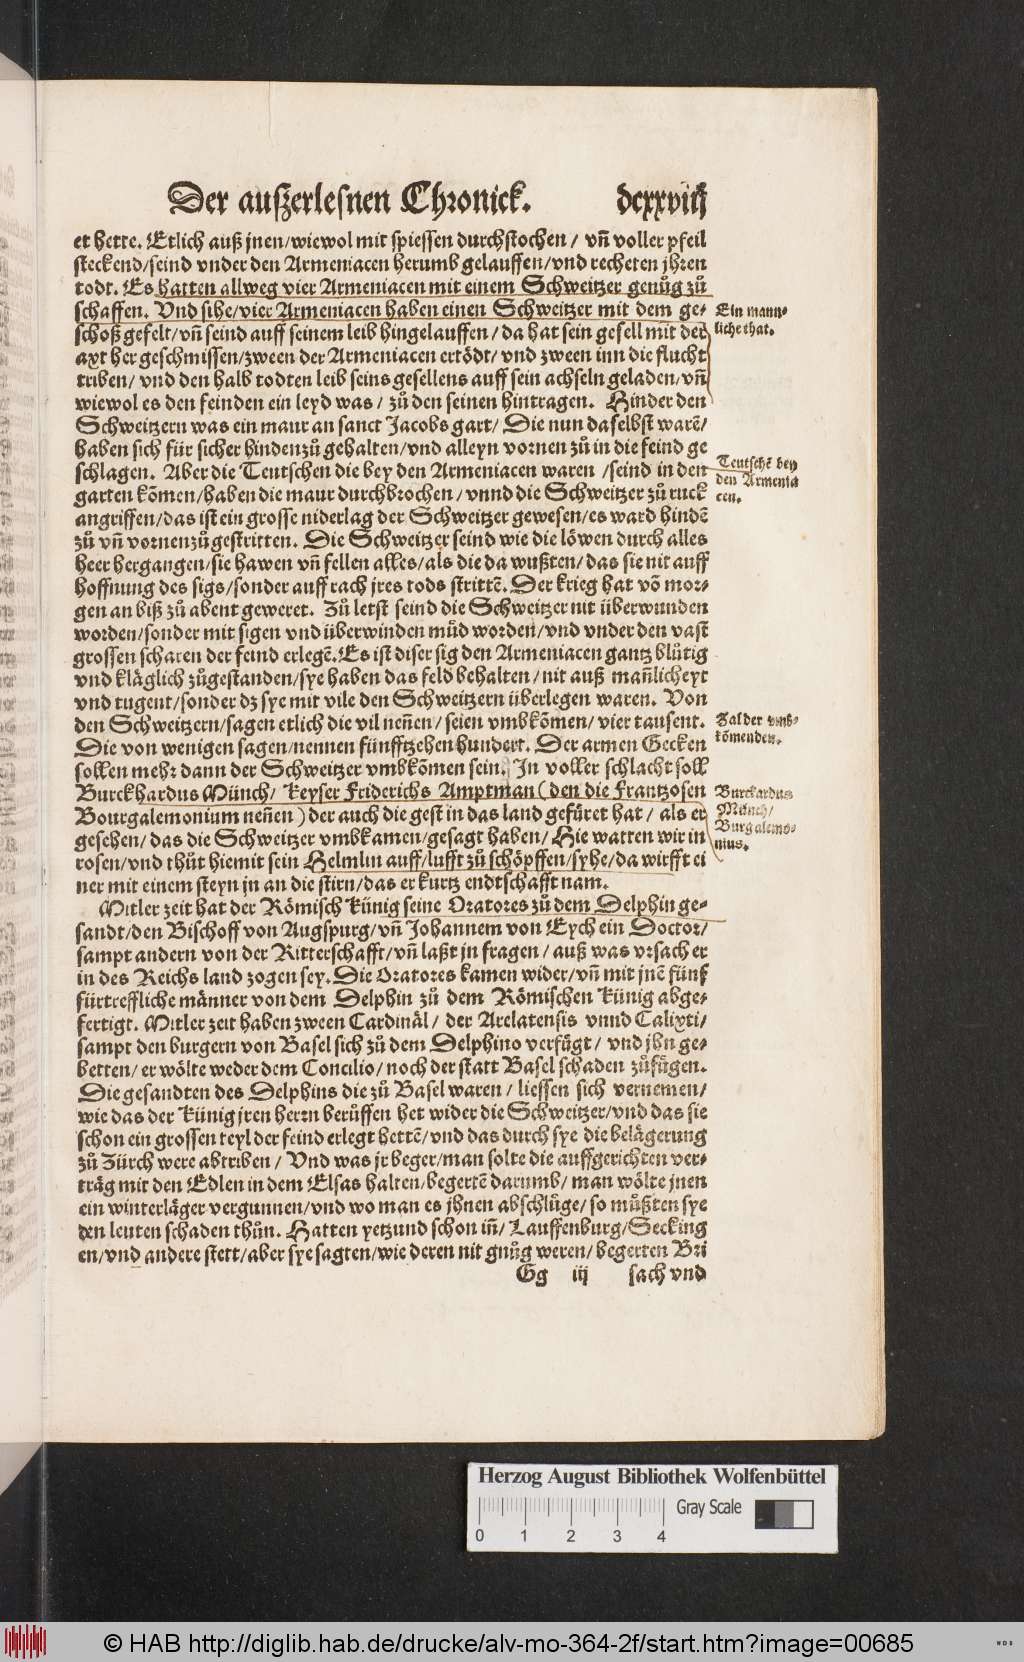 Der auſzerleſnen Chronick. dcxxviij
et hette. Etlich auß jnen/wiewol mit ſpieſſen durchſtochen / vñ voller pfeil
ſteckend/ſeind vnder den Armeniacen herumb gelauffen/vnd recheten jhren
todt. Es hatten allweg vier Armeniacen mit einem Schweitzer genůg zů
ſchaffen. Vnd ſihe/vier Armeniacen haben einen Schweitzer mit dem ge-
ſchoß gefelt/vñ ſeind auff ſeinem leib hingelauffen / da hat ſein geſell mit der
axt her geſchmiſſen/zween der Armeniacen ertödt/ vnd zween inn die flucht
triben/ vnd den halb todten leib ſeins geſellens auff ſein achſeln geladen/vñ
wiewol es den feinden ein leyd was / zů den ſeinen hintragen. Hinder den
Schweitzern was ein maur an ſanct Jacobs gart/ Die nun daſelbſt warẽ/
haben ſich für ſicher hindenzů gehalten/vnd alleyn vornen zů in die feind ge
ſchlagen. Aber die Teutſchen die bey den Armeniacen waren /ſeind in den
garten kõmen/haben die maur durchbrochen / vnnd die Schweitzer zů ruck
angriffen/das iſt ein groſſe niderlag der Schweitzer geweſen/es ward hindẽ
zů vñ vornenzů geſtritten. Die Schweitzer ſeind wie die löwen durch alles
heer hergangen/ſie hawen vñ fellen alles/als die da wußten/das ſie nit auff
hoffnung des ſigs/ſonder auff rach jres tods ſtrittẽ. Der krieg hat võ mor-
gen an biß zů abent geweret. Zů letſt ſeind die Schweitzer nit überwunden
worden/ſonder mit ſigen vnd überwinden můd worden/vnd vnder den vaſt
groſſen ſcharen der feind erlegẽ. Es iſt diſer ſig den Armeniacen gantz blůtig
vnd kläglich zůgeſtanden/ſye haben das feld behalten/nit auß mañlicheyt
vnd tugent/ſonder dz ſye mit vile den Schweitzern überlegen waren. Von
den Schweitzern/ſagen etlich die vil neñen/ ſeien vmbkõmen/vier tauſent.
Die von wenigen ſagen/nennen fünfftzehen hundert. Der armen Gecken
ſollen mehr dann der Schweitzer vmbkõmen ſein. In voller ſchlacht ſoll
Burckhardus Münch/ Keyſer Friderichs Amptman (den die Frantzoſen
Bourgalemonium neñen) der auch die geſt in das land gefüret hat / als er
geſehen/das die Schweitzer vmbkamen/geſagt haben/Hie watten wir in
roſen/vnd thůt hiemit ſein Helmlin auff/lufft zů ſchöpffen/ſyhe/da wirfft ei
ner mit einem ſteyn jn an die ſtirn/das er kurtz endtſchafft nam.
Mitler zeit hat der Römiſch Künig ſeine Oratores zů dem Delphin ge-
ſandt/den Biſchoff von Augſpurg/vñ Johannem von Eych ein Doctor/
ſampt andern von der Ritterſchafft/vñ laßt jn fragen/ auß was vrſach er
in des Reichs land zogen ſey. Die Oratores kamen wider/vñ mit jnẽ fünff
fürtreffliche männer von dem Delphin zů dem Römiſchen Künig abge-
fertigt. Mitler zeit haben zween Cardinäl/ der Arelatenſis vnnd Calixti/
ſampt den burgern von Baſel ſich zů dem Delphino verfügt/ vnd jhn ge-
betten/er wölte weder dem Concilio/noch der ſtatt Baſel ſchaden zůfügen.
Die geſandten des Delphins die zů Baſel waren / lieſſen ſich vernemen/
wie das der Künig jren herrn berüffen het wider die Schweitzer/vnd das ſie
ſchon ein groſſen teyl der feind erlegt hettẽ/vnd das durch ſye die belägerung
zů Zürch were abtriben / Vnd was jr beger/man ſolte die auffgerichten ver-
träg mit den Edlen in dem Elſas halten/begertẽ darumb/ man wölte jnen
ein winterläger vergunnen/vnd wo man es jhnen abſchlůge/ſo můßten ſye
den leuten ſchaden thůn. Hatten yetzund ſchon iñ/ Lauffenburg/Secking
en/vnd andere ſtett/aber ſye ſagten/wie deren nit gnůg weren/ begerten Bri
Gg iij ſach vnd
Ein mann-
liche that.
Teutſchẽ bey
den Armenia
cen.
Zal der vmb-
kõmenden.
Burckardus
Münch/
Burgalemo-
nius.
Herzog August Bibliothek Wolfenbüttel
Gray Scale
0 1 2 3 4
© HAB http://diglib.hab.de/drucke/alv-mo-364-2f/start.htm?image=00685